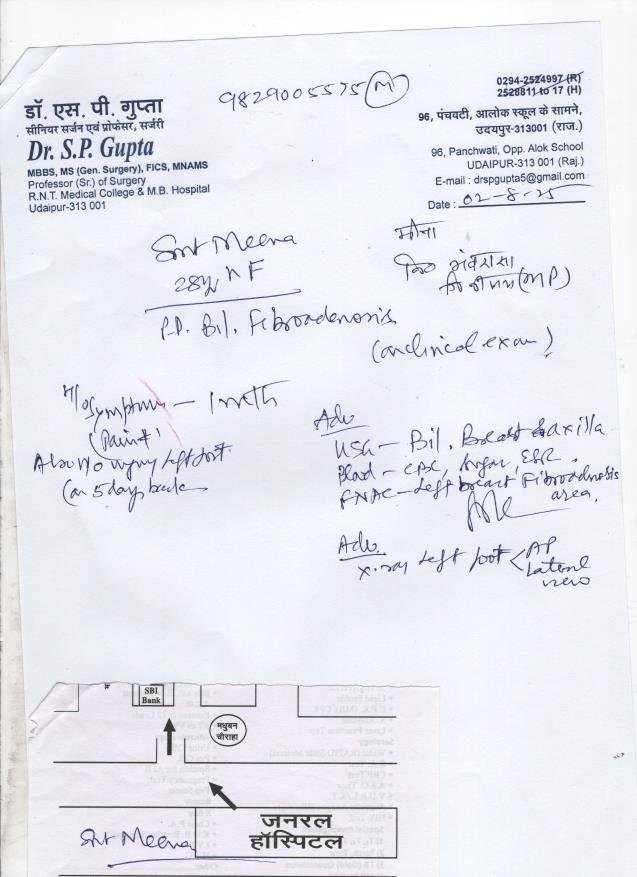 9829005575 (M)
डॉ. एस. पी. गुप्ता
सीनियर सर्जन एवं प्रोफेसर, सर्जरी
Dr. S.P. Gupta
MBBS, MS (Gen. Surgery), FICS, MNAMS
Professor (Sr.) of Surgery
R.N.T. Medical College & M.B. Hospital
Udaipur-313 001
0294-2524997 (R)
2528811 to 17 (H)
96, पंचवटी, आलोक स्कूल के सामने,
उदयपुर-313001 (राज.)
96, Panchwati, Opp. Alok School
UDAIPUR-313 001 (Raj.)
E-mail : drspgupta5@gmail.com
Date : 02-8-25
Smt Meena
28y F
मीना
(MP)
P.D. Bil. Fibroadenosis
(on clinical exam)
H/o Symptoms — 1 mth
(Pain+)
Also H/o injury left foot
(on 5 days back
Adv
USG — Bil. Breast & axilla
Blood — CBC, Sugar, ESR.
FNAC — Left breast Fibroadenosis
area.
Adv.
X-ray Left foot < AP
Lateral
view
SBI
Bank
मधुबन
चौराहा
जनरल
हॉस्पिटल
Smt Meena